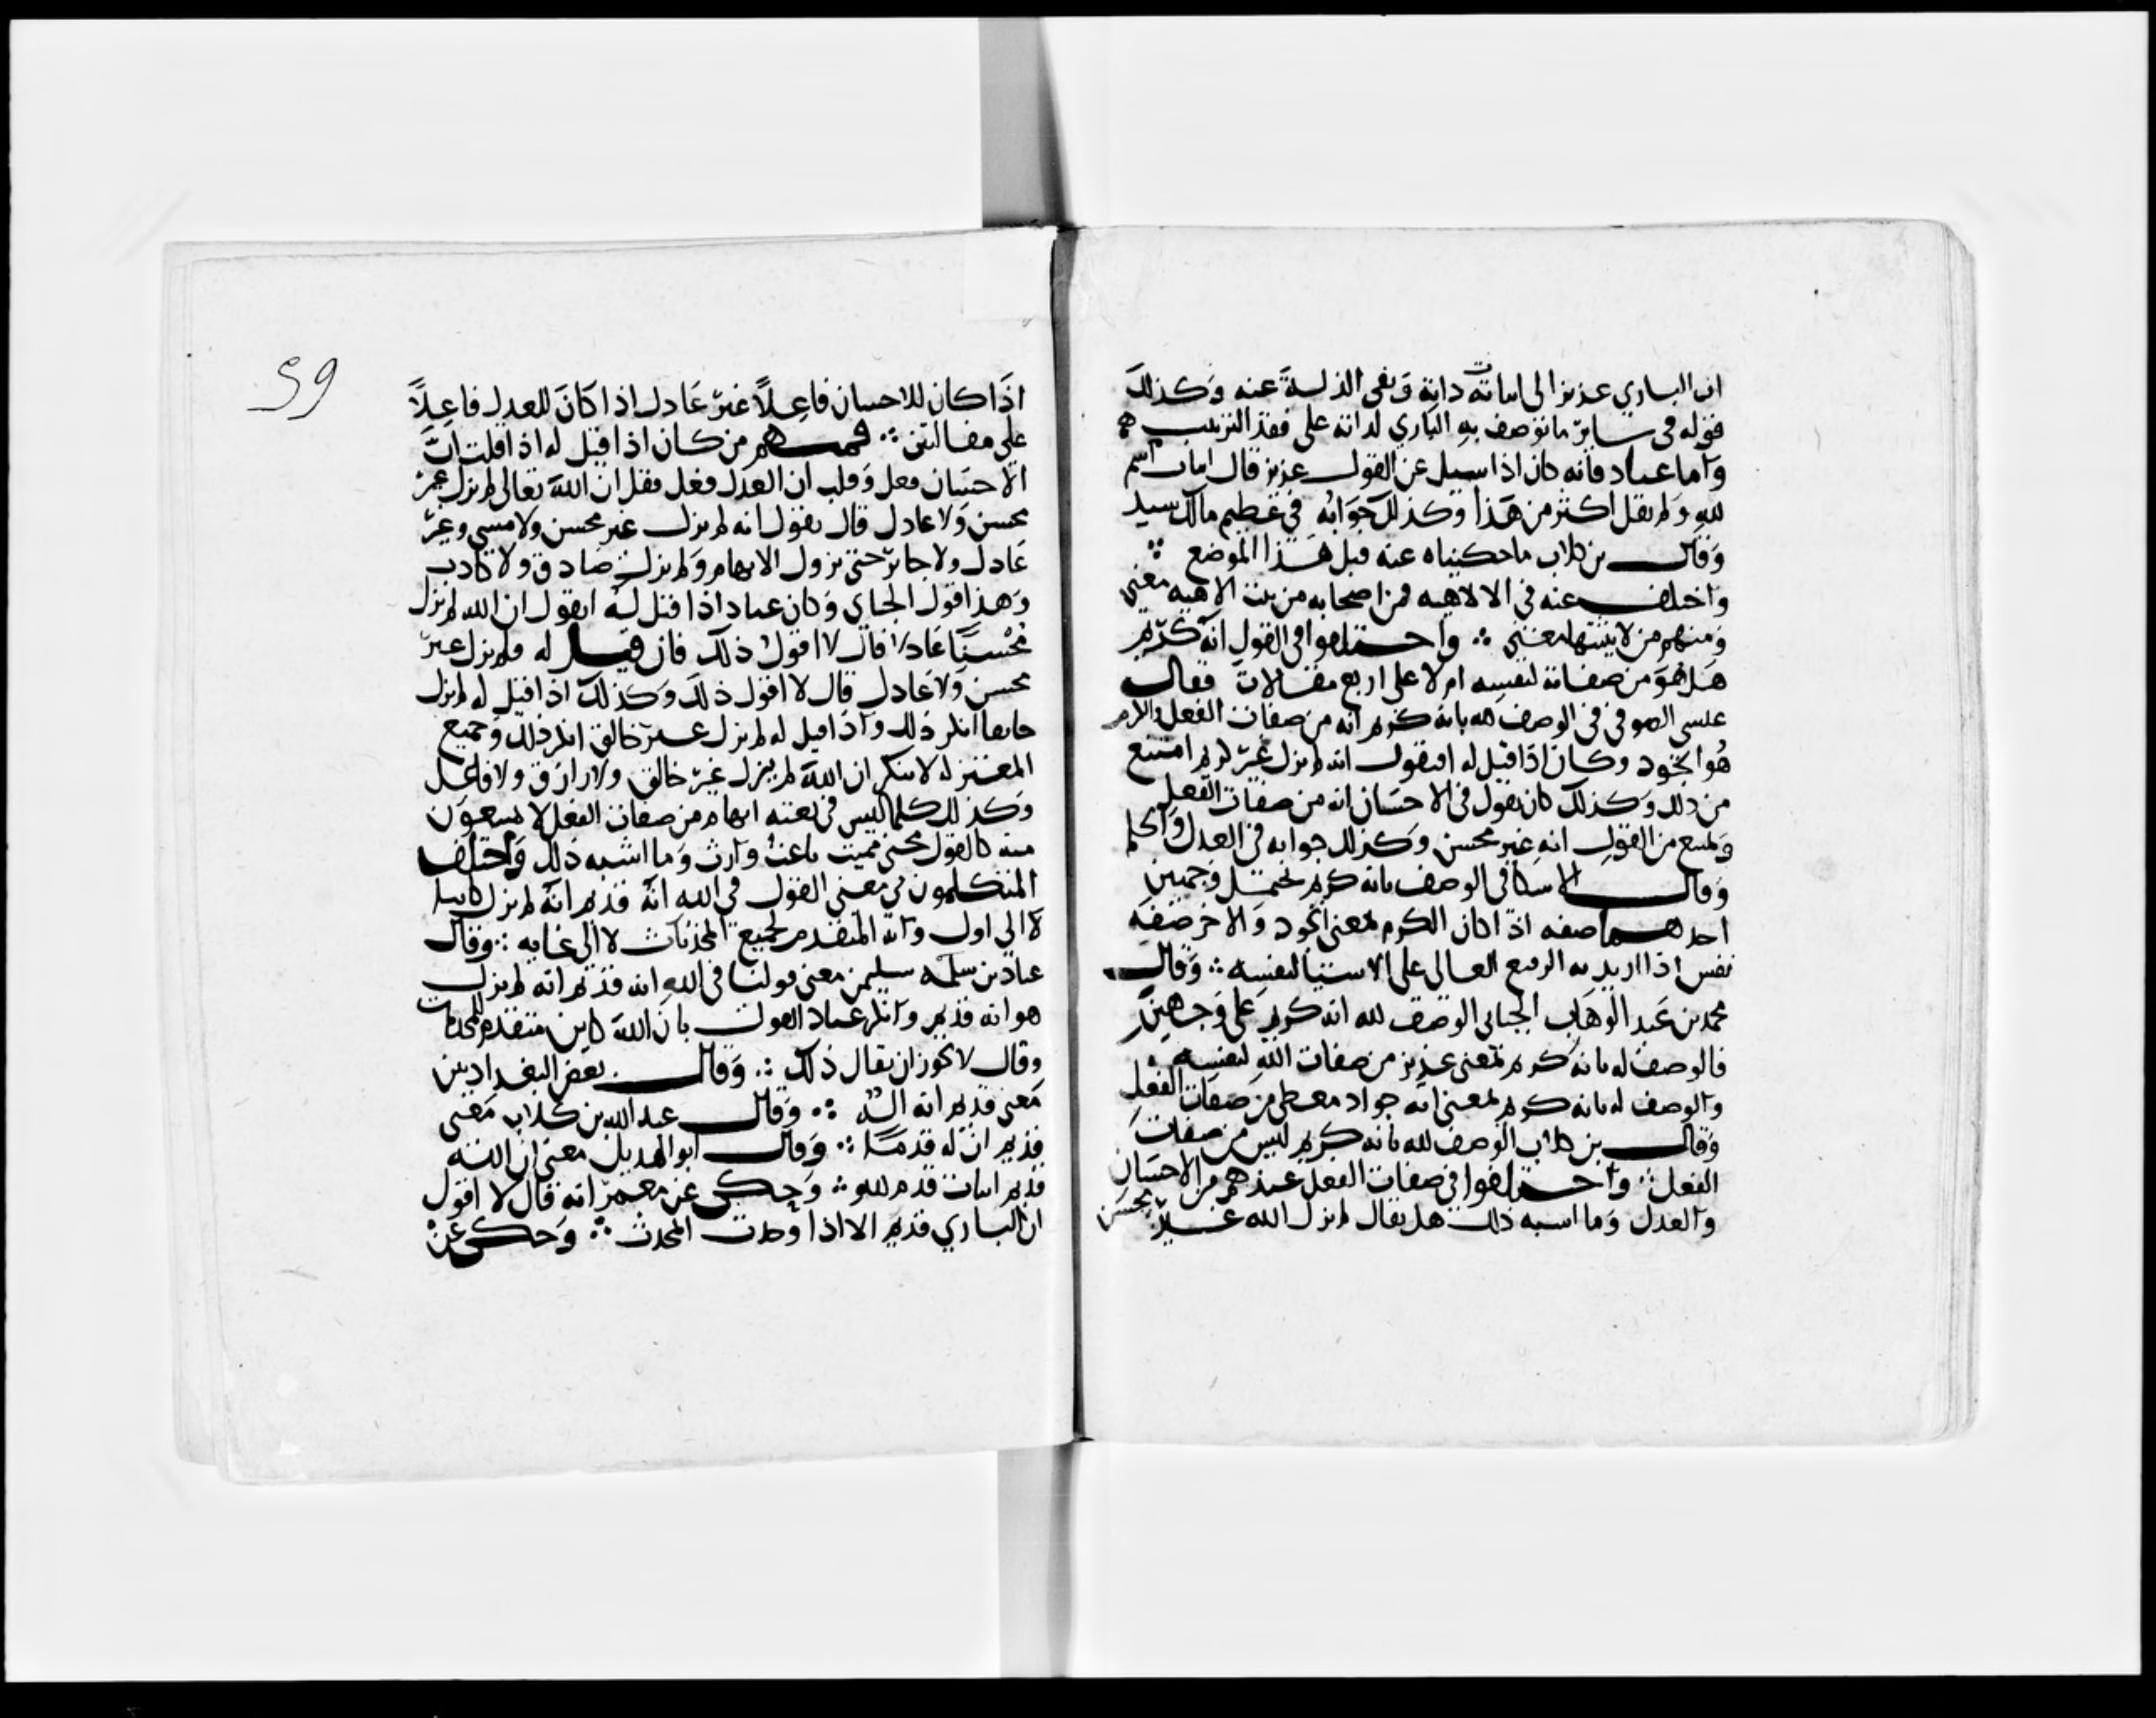 ان الباري عزيز الى اثباته ذاته ونفى الذلة عنه وكذلك
قوله فى ساير ما توصف به الباري لذاته على فقد الترتيب
واما عباد فانه كان اذا سيل عن القول عزيز قال اثبات اسم
لله ولم يقل اكثر من هذا وكذلك جوابه في عظيم مالك سيد
وقال بن كلاب ما حكيناه عنه قبل هذا الموضع ∴
واختلف عنه في الالاهيه فمن اصحابه من يثبت الالاهيه معنى
ومنهم من لا يثبتها معنى ∴ واختلفوا فى القول انه كريم
هل هو من صفاته لنفسه ام لا على اربع مقالات فقال
عيسى الصوفي في الوصف لله بانه كريم انه من صفات الفعل والكرم
هو الجود وكان اذا قيل له افتقول انه لم يزل غير كريم امتنع
من ذلك وكذلك كان يقول في الاحسان انه من صفات الفعل
ويمتنع من القول انه غير محسن وكذلك جوابه في العدل والحلم
وقال الاسكافى الوصف بانه كريم يحتمل وجهين
احدهما صفه اذا كان الكرم بمعنى الجود والاخر صفه
نفس اذا اريد به الرفيع العالى على الاشيا لنفسه ∴ وقال
محمد بن عبد الوهاب الجبائى الوصف لله انه كريم على وجهين
فالوصف له بانه كريم بمعنى عزيز من صفات الله لنفسه
والوصف له بانه كريم بمعنى انه جواد معطى من صفات الفعل
وقال بن كلاب الوصف لله بانه كريم ليس من صفات
الفعل ∴ واختلفوا في صفات الفعل عندهم من الاحسان
والعدل وما اشبه ذلك هل يقال لم يزل الله غير محسن
59
اذا كان للاحسان فاعلاً غير عادل اذا كان للعدل فاعلاً
على مقالتين ∴ فمنهم من كان اذا قيل له اذا قلت ان
الاحسان فعل وقلت ان العدل فعل فقل ان الله تعالى لم يزل غير
محسن ولا عادل قال نقول انه لم يزل غير محسن ولا مسى وغير
عادل ولا جائر حتى يزول الابهام ولم يزل صادق ولا كاذب
وهذا قول الجباي وكان عباد اذا قيل له اتقول ان الله لم يزل
محسنًا عادلا قال لا اقول ذلك فان قيل له فلم يزل غير
محسن ولا عادل قال لا اقول ذلك وكذلك اذا قيل له لم يزل
خالقا انكر ذلك واذا قيل له لم يزل غير خالق انكر ذلك وجميع
المعتزله لا ينكر ان الله لم يزل غير خالق ولا رازق ولا فاعل
وكذلك كلما ليس في نعته ابهام من صفات الفعل لا يمتنعون
منه كالقول محيى مميت باعث وارث وما اشبه ذلك واختلف
المتكلمون في معنى القول في الله انه قديم انه لم يزل كاينا
لا الى اول وانه المتقدم لجميع المحدثات لا الى غايه ∴ وقال
عباد بن سليمن معنى قولنا فى الله انه قديم انه لم يزل
هو انه قديم وانكر عباد القول بان الله كاين متقدم للمحدثات
وقال لا يجوز ان يقال ذلك ∴ وقال بعض البغداديين
معنى قديم انه اله ∴ وقال عبد الله بن كلاب معنى
قديم ان له قدمًا ∴ وقال ابو الهذيل معنى ان الله
قديم اثبات قدم لله ∴ وحكى عن معمر انه قال لا اقول
ان الباري قديم الا اذا اوحدت المحدث ∴ وحكى عن